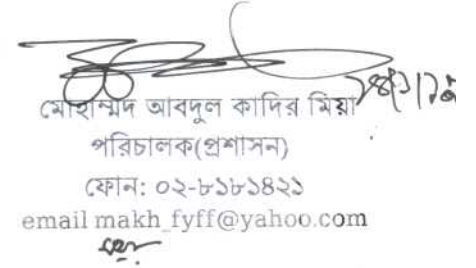 মোহাম্মদ আবদুল কাদির মিয়া
পরিচালক(প্রশাসন)
ফোন: ০২-৮১৮১৪২১
email makh_fyff@yahoo.com